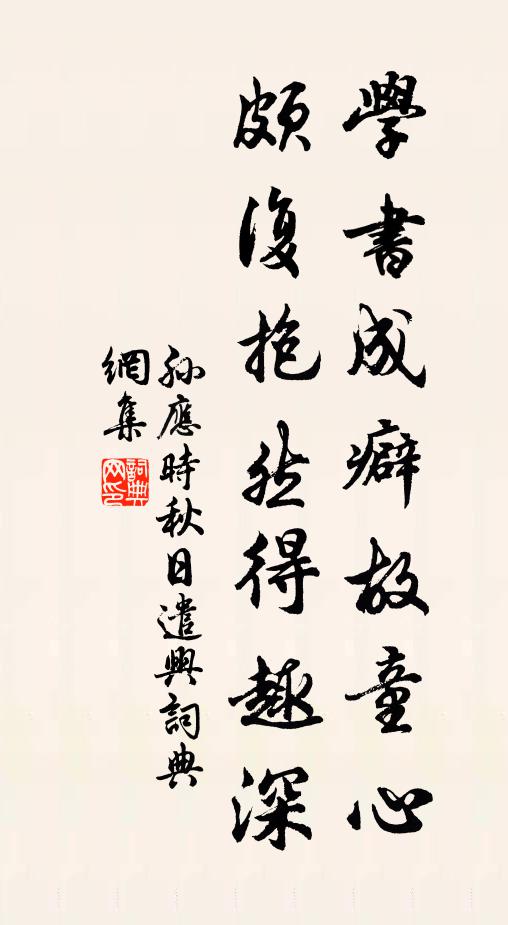 學書成癖故童心
頗復抱然得趣深
孫應時秋日遣興詞典
網集
詞典
网印